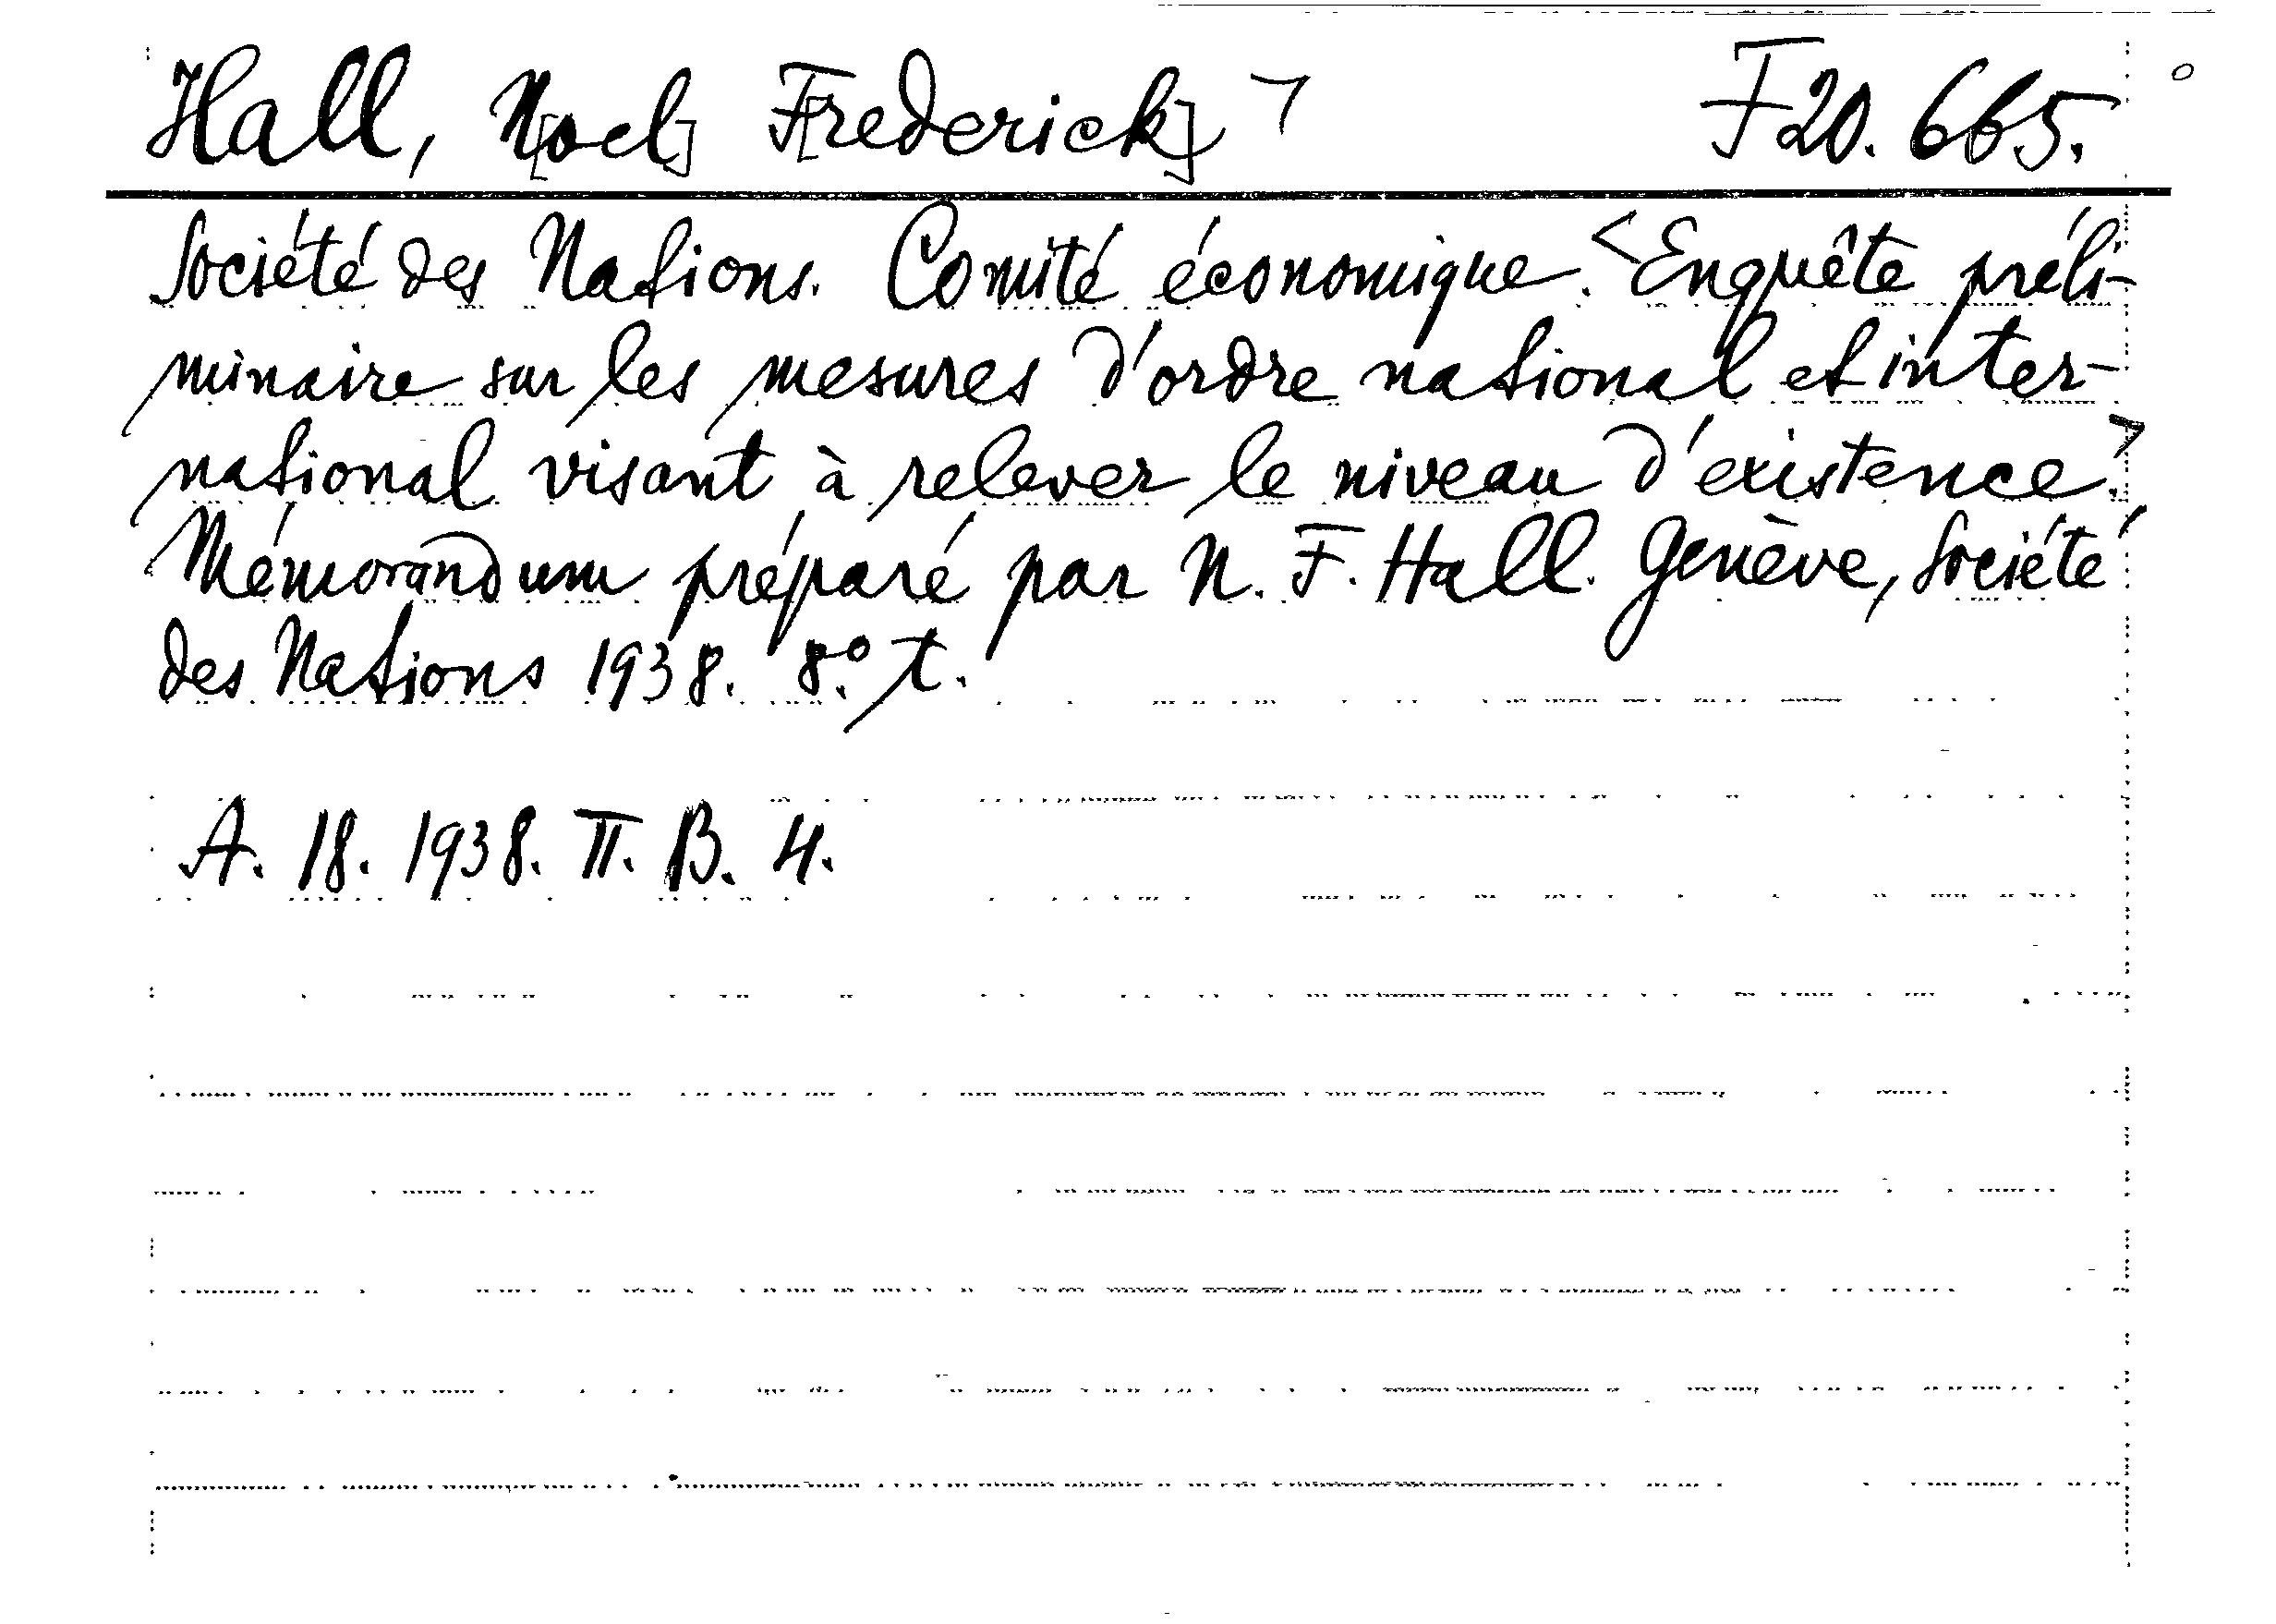 Hall, N[oel] F[rederick] ¬ F 20. 665. °
Société des Nations. Comité économique. <Enquête préli-
minaire sur les mesures d'ordre national et inter-
national visant à relever le niveau d'existence.>
Mémorandum préparé par N. F. Hall. Genève, Société
des Nations 1938. 8°. t.
A. 18. 1938. II. B. 4.